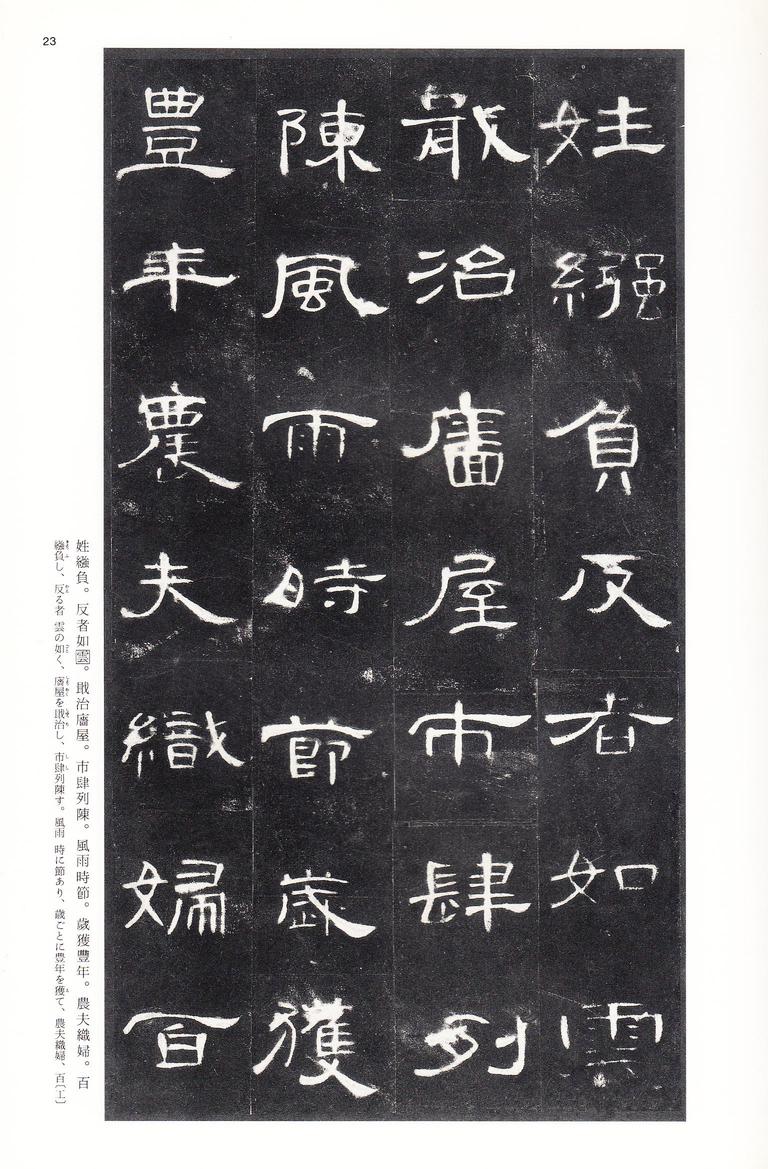 23
姓繦負反者如雲
戢治廧屋市肆列
陳風雨時節歲獲
豐年農夫織婦百
姓繦負。反者如雲。戢治廧屋。市肆列陳。風雨時節。歲獲豐年。農夫織婦。百
繦負し、反る者 雲の如く、廧屋を戢治し、市肆列陳す。風雨 時に節あり、歳ごとに豊年を獲て、農夫織婦、百〔工〕